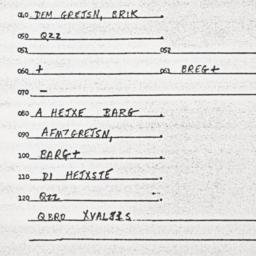 010 DEM GREJSN, BRIK.
050 QZZ.
051 052
060 + 061 BREG+
070 —
080 A HEJXE BARG.
090 AFM7GREJSN,
100 BARG+.
110 DI HEJXSTE.
120 QZZ.
QBRO